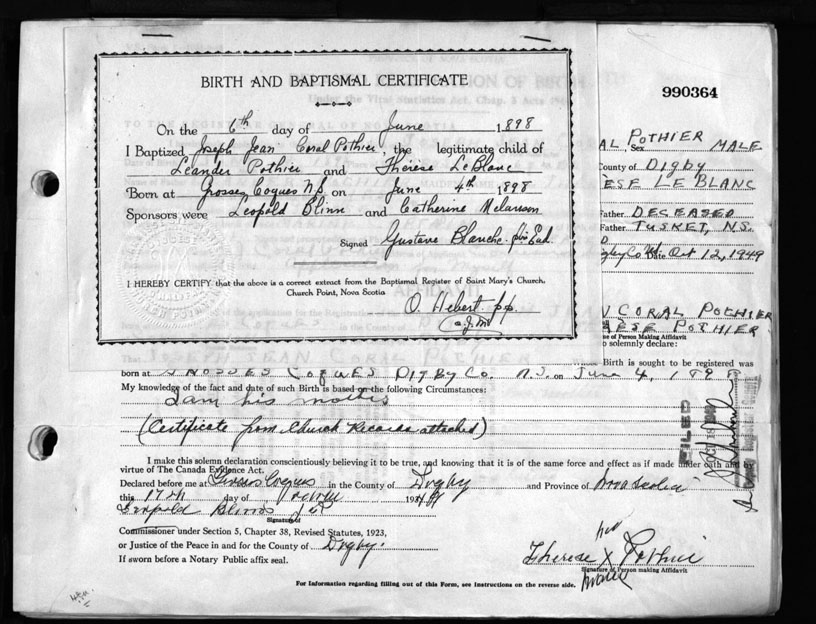 BIRTH AND BAPTISMAL CERTIFICATE
On the 6th day of June 1898
I Baptized Joseph Jean Coral Pothier, the legitimate child of
Leander Pothier and Thérèse LeBlanc
Born at Grosses Coques N.S. on June 4th 1898
Sponsors were Leopold Blinn and Catherine Melanson
Signed Gustave Blanche
I HEREBY CERTIFY that the above is a correct extract from the Baptismal Register of Saint Mary's Church,
Church Point, Nova Scotia
O. Hebert p.p.
990364
AL POTHIER Sex MALE
County of DIGBY
ESE LE BLANC
Father DECEASED
Father TUSKET, N.S.
Date Oct 12, 1949
N CORAL POTHIER
RÈSE POTHIER
me of Person Making Affidavit
o solemnly declare:
JOSEPH JEAN CORAL POTHIER Birth is sought to be registered was
born at GROSSES COQUES DIGBY CO. N.S. on June 4, 1898
My knowledge of the fact and date of such Birth is based on the following Circumstances:
I am his mother
(Certificate from Church Records attached)
FILED
I make this solemn declaration conscientiously believing it to be true, and knowing that it is of the same force and effect as if made under oath and by
virtue of The Canada Evidence Act.
Declared before me at Grosses Coques in the County of Digby and Province of Nova Scotia
this 17th day of 1949
Leopold Blinn J.P.
Signature of
Commissioner under Section 5, Chapter 38, Revised Statutes, 1923,
or Justice of the Peace in and for the County of Digby.
If sworn before a Notary Public affix seal.
her
Therese X Pothier
Signature of Person making Affidavit
mark
For Information regarding filling out of this Form, see Instructions on the reverse side.